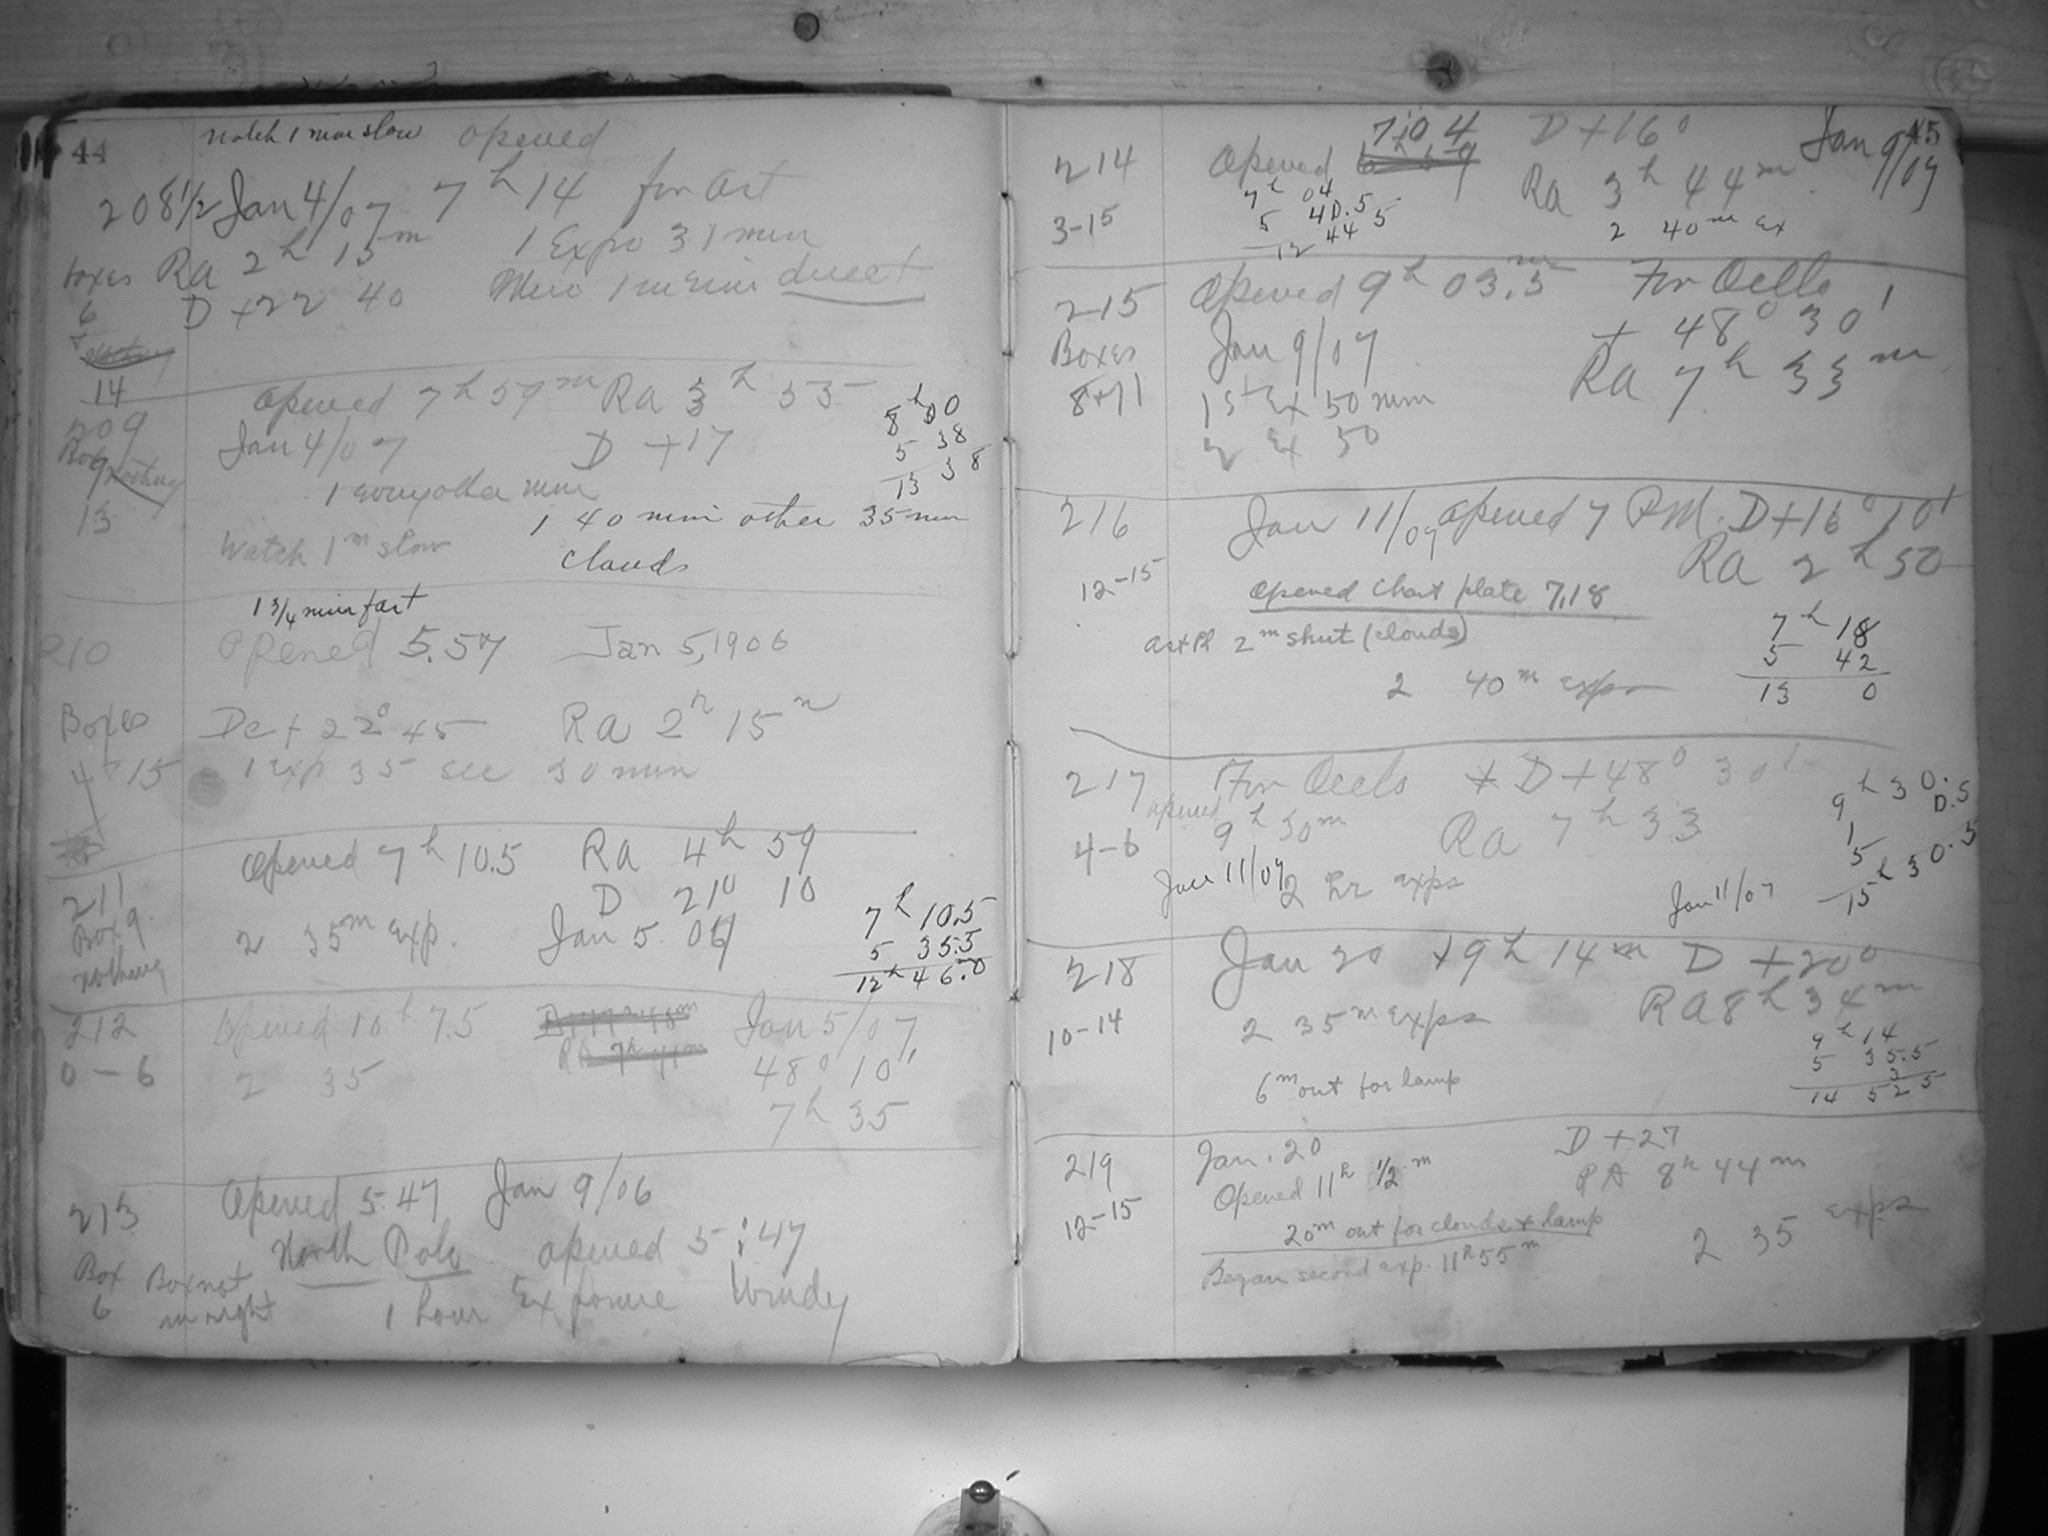 44
watch 1 min slow opened
208 1/2 Jan 4/07 7h 14 for Ast
Ra 2h 15m 1 Expo 31 min
Boxes D +22 40 direct
6
+
14
209 opened 7h 59m Ra 3h 55
Box Jan 4/07 D +17
9 nothing
13
8h 00
5 38
13 38
1 every other min
1 40 min other 35 min
Watch 1m slow clouds
1 3/4 min fast
210 Opened 5.57 Jan 5, 1906
Boxes Dc + 22° 45 Ra 2h 15m
4 + 15 1 Exp 35 sec 30 min
211 opened 7h 10.5 Ra 4h 59
D 21° 10
Box 9 2 35m exp. Jan 5 07
nothing
7h 10.5
5 35.5
12h 46.0
212 opened 10h 7.5 Jan 5/07
0 - 6 2 35 48° 10'
7h 35
213 opened 5.47 Jan 9/06
North Pole opened 5:47
Box 6 Box not in right
1 hour Exposure Windy
45
Jan 9/07
214 opened 7:04 D +16°
3-15 Ra 3h 44m
7h 04
5 40.5
12 44 5
2 40m Ex
215 opened 9h 03.5m For Oells
Boxes Jan 9/07 + 48° 30'
8+11 1st Ex 50 min Ra 7h 33m
2 Ex 50
216 Jan 11/07 opened 7 P.M. D+16° 10'
Ra 2h 50
12-15 opened chart plate 7.18
Ast Pl 2m shut (clouds)
2 40m exps
7h 18
5 42
13 0
217 For Oells * D +48° 30'
opened 9h 30m Ra 7h 33
4-6 Jan 11/07 2 hr exps
Jan 11/07
9h 30.
0.5
1
5
15h 30.5
218 Jan 20 +9h 14m D +20°
10-14 2 35m exps RA 8h 34m
6m out for lamp
9h 14
5 35.5
3
14 52 5
219 Jan. 20 D +27
Opened 11h 1/2m RA 8h 44m
12-15 20m out for clouds & lamp
2 35 exps
Began second exp. 11h 55m